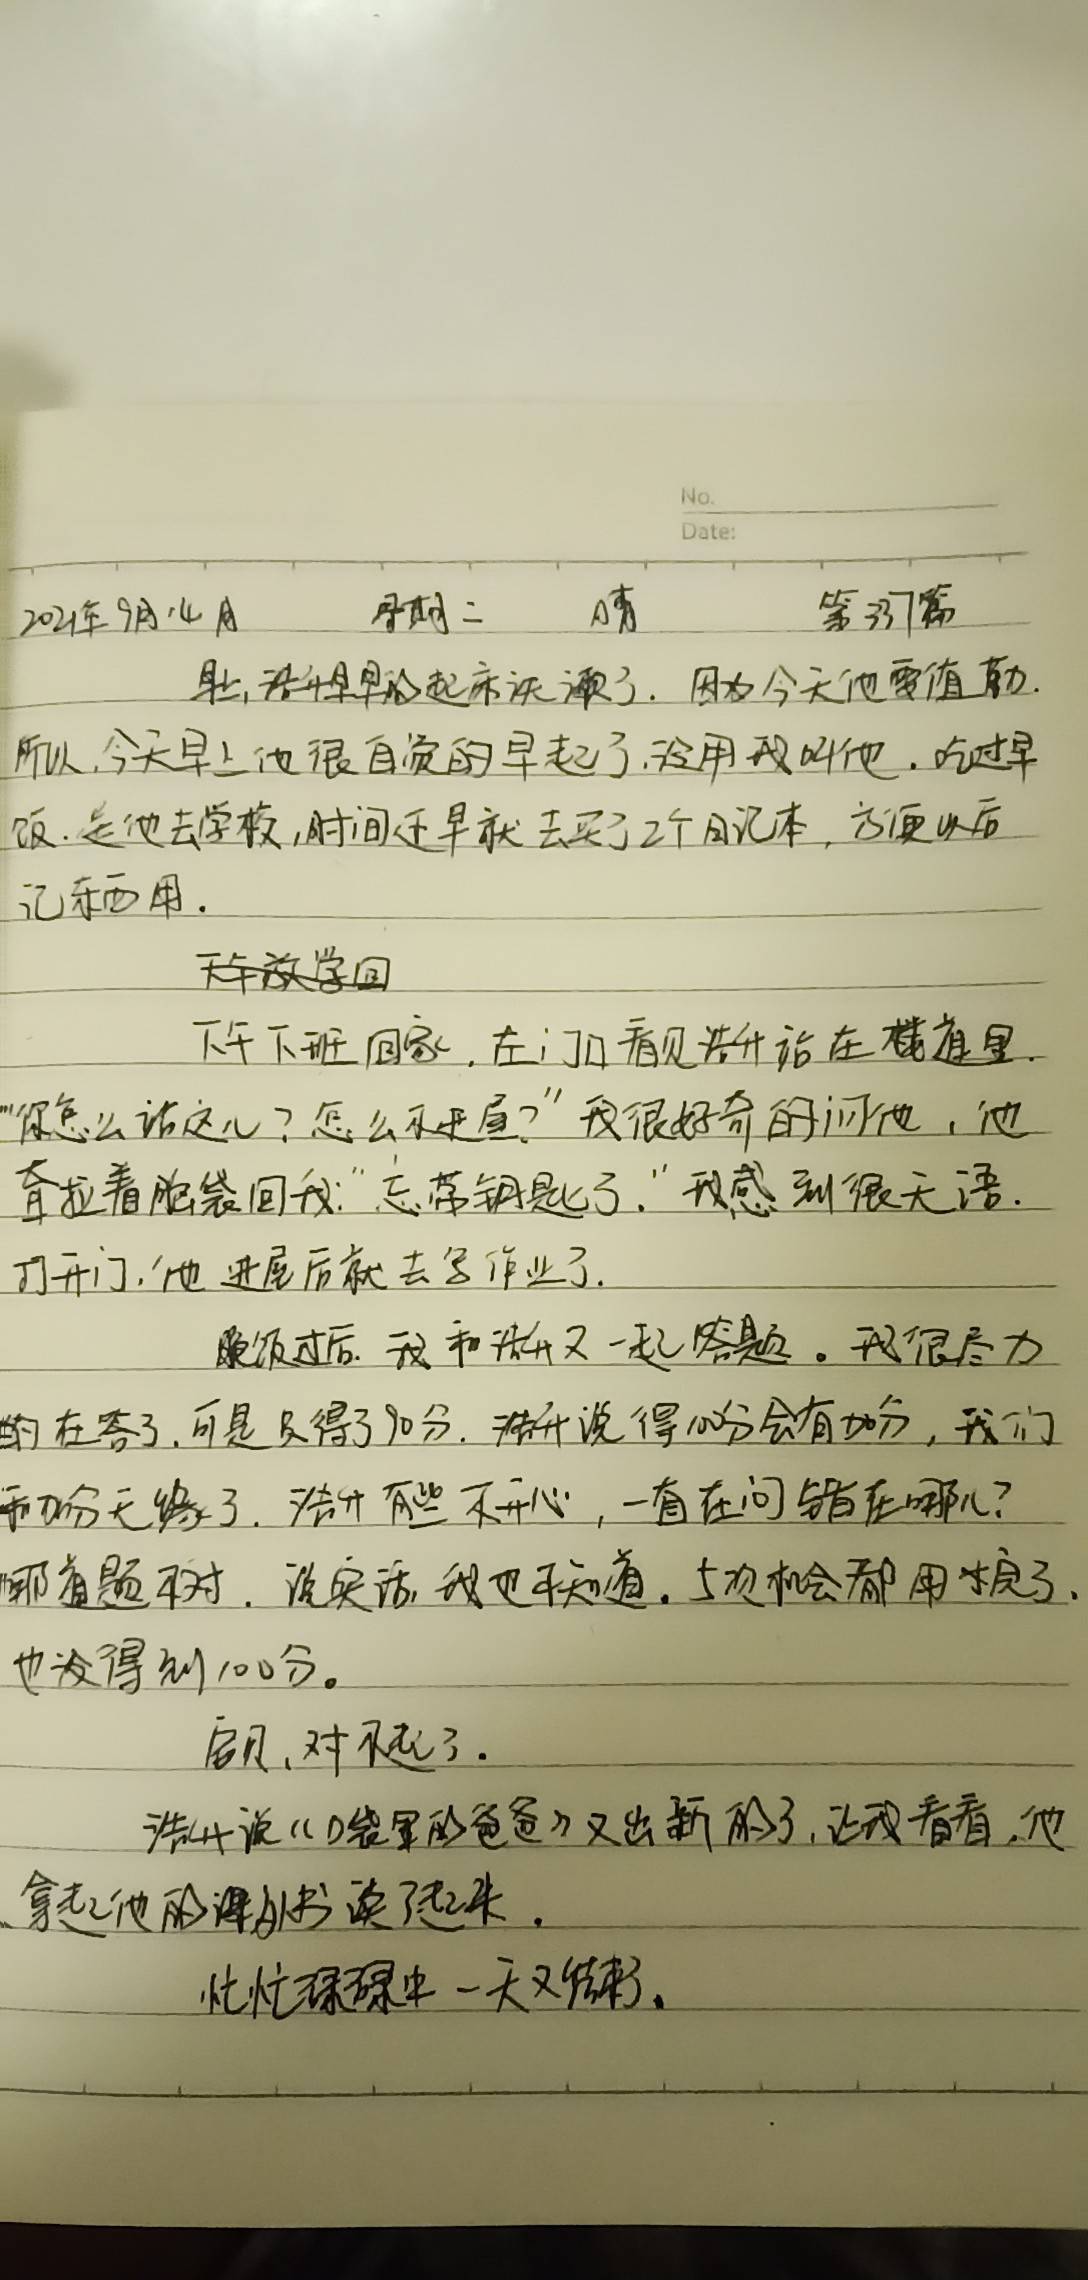 No.
Date:
2021年9月14日 星期二 晴 第337篇
早上,浩升早早的起床洗漱了.因为今天他要值勤.
所以,今天早上他很自觉的早起了,没用我叫他.吃过早
饭.送他去学校,时间还早就去买了2个日记本,方便以后
记东西用.
下午放学回
下午下班回家,在门口看见浩升站在楼道里.
"你怎么站这儿?怎么不进屋?"我很好奇的问他,他
耷拉着脑袋回我:"忘带钥匙了."我感到很无语.
打开门,他进屋后就去写作业了.
晚饭过后.我和浩升又一起答题。我很尽力
的在答了.可是只得了90分.浩升说得100分会有加分,我们
和加分无缘了.浩升有些不开心,一直在问错在哪儿?
哪道题不对.说实话,我也不知道.5次机会都用完了.
也没得到100分。
宝贝,对不起了.
浩升说《口袋里的爸爸》又出新的了,让我看看.他
拿起他的课外书读了起来.
忙忙碌碌中一天又结束了。